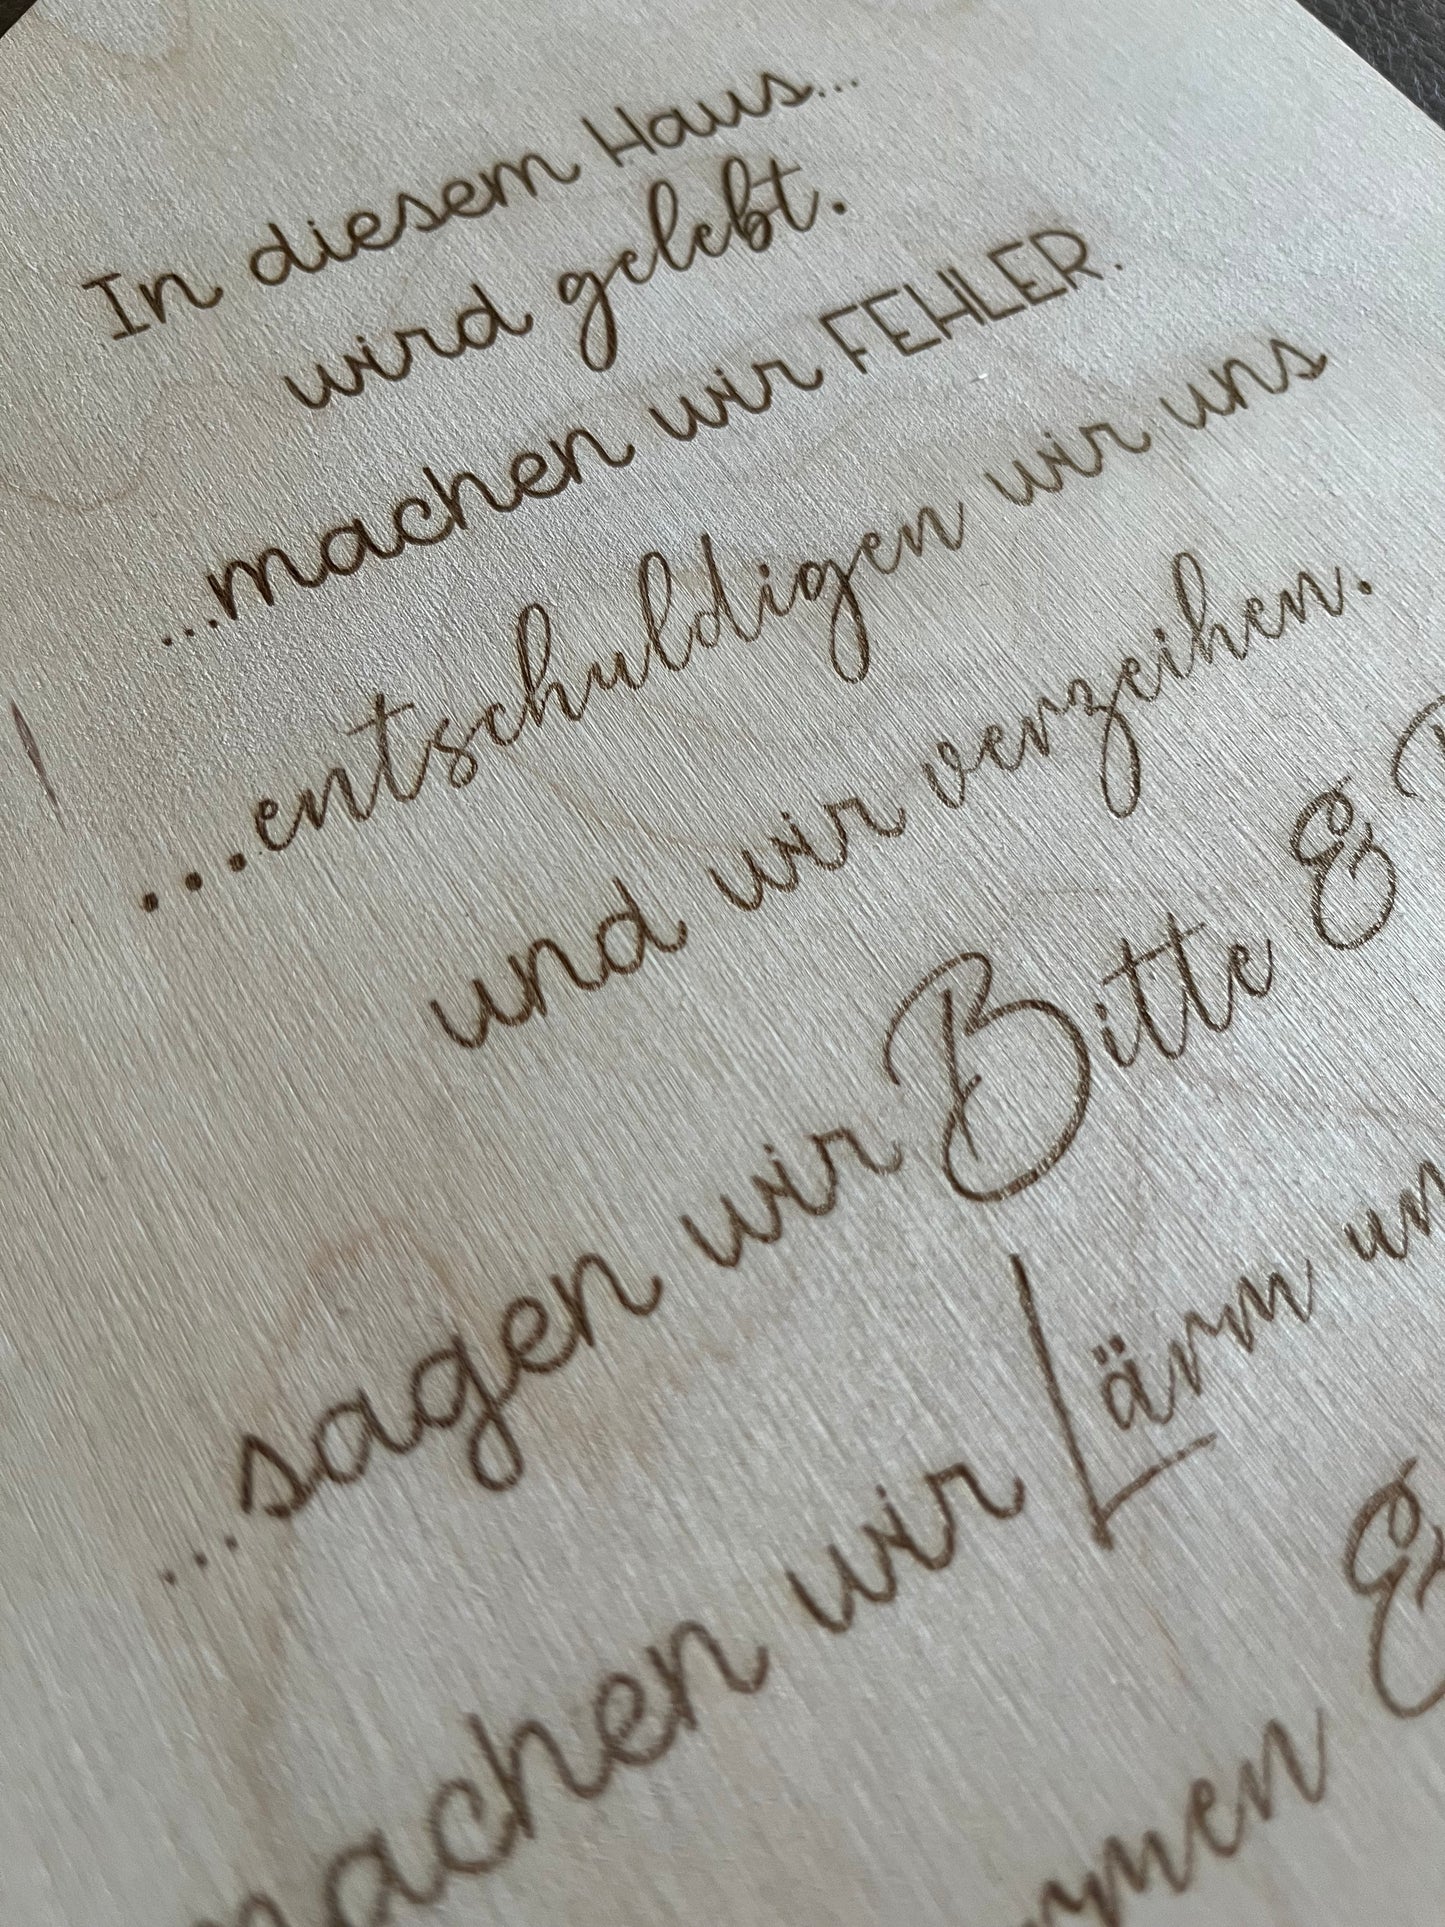 In diesem Haus...
wird gelebt.
...machen wir FEHLER.
...entschuldigen wir uns
und wir verzeihen.
...sagen wir Bitte &
machen wir Lärm